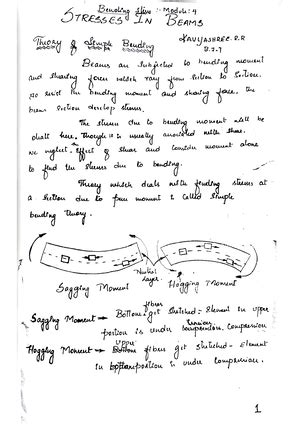 Bending Stress :- Module : 4
STRESSES IN BEAMS
Theory of Simple Bending
KAVYASHREE.R.R
Beams are subjected to bending moment
and shearing force which vary from section to section.
To resist the bending moment and shearing force, the
beam section develop stresses.
The stresses due to bending moment will be
dealt here. Though it is usually associated with shear.
we neglect effect of shear and consider moment alone
to find the stresses due to bending.
Theory which deals with finding stresses at
a section due to pure moment is called simple
bending theory.
Neutral
Layer
Sagging Moment
Hogging Moment
fibres
Sagging Moment → Bottom get stretched - Element in upper
portion is under compression
tension
upper
Hogging Moment → Bottom fibres get stretched - Element
in bottom portion is under compression.
1